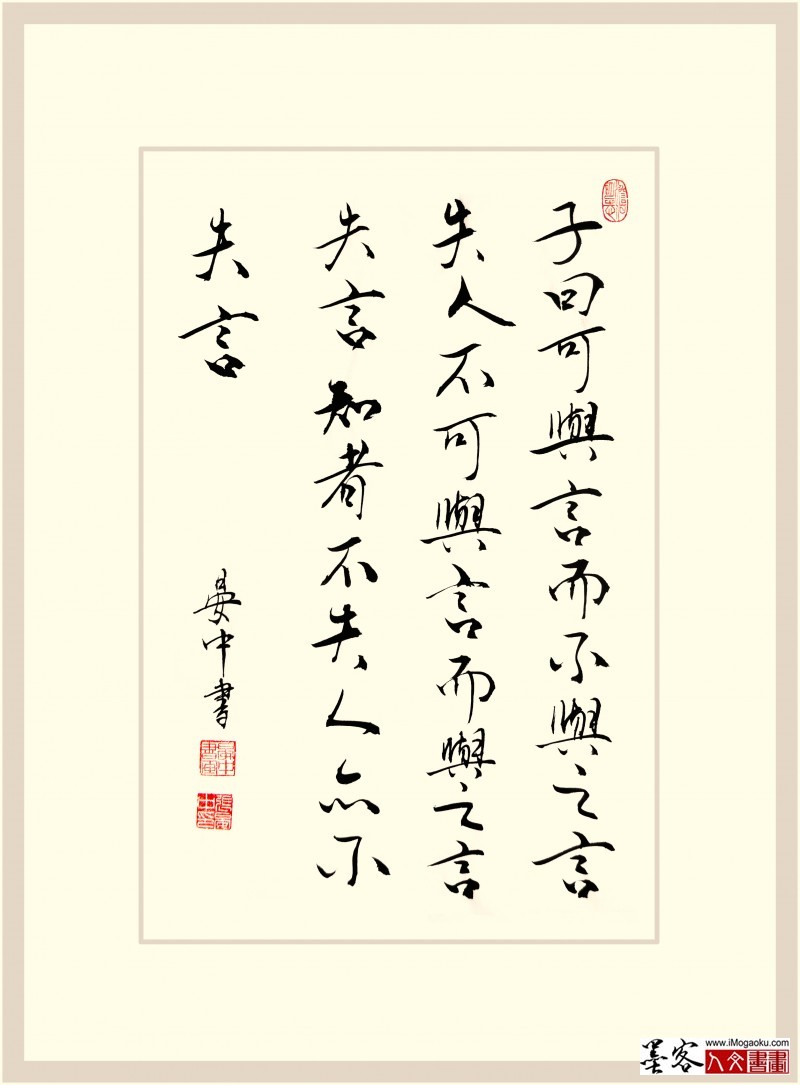 子曰可與言而不與之言
失人不可與言而與之言
失言知者不失人亦不
失言
晏中書
墨客
www.iMogaoku.com
人文書畫